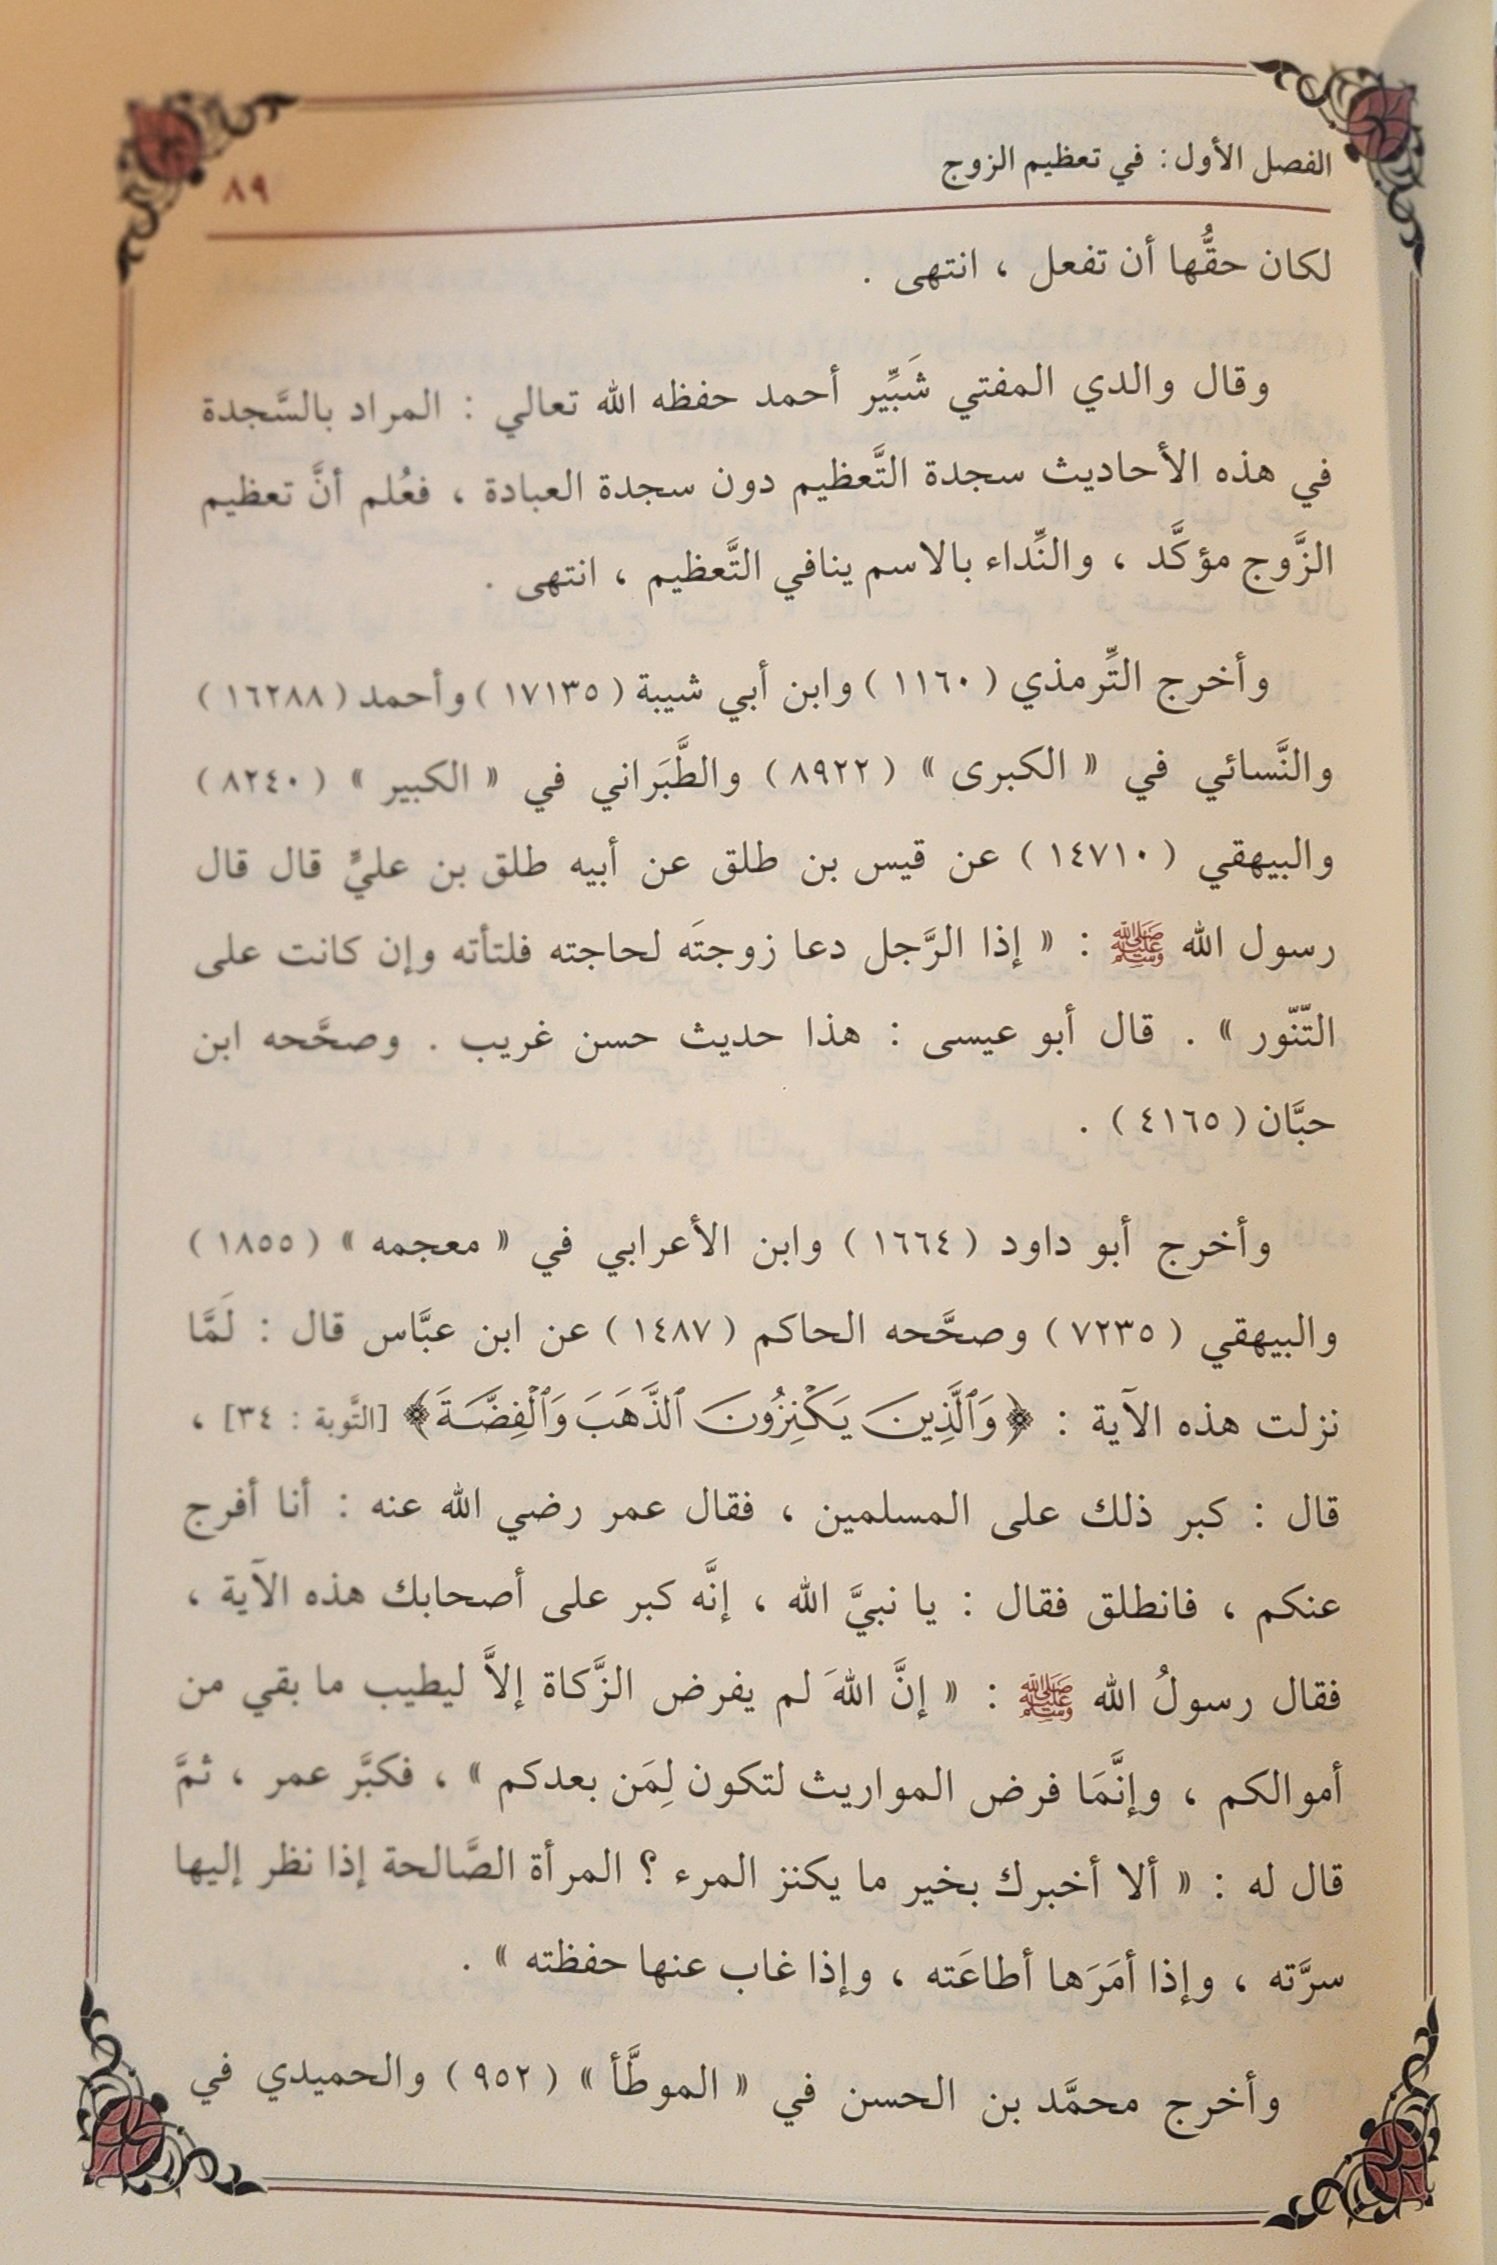 الفصل الأول: في تعظيم الزوج ٨٩
لكان حقُّها أن تفعل ، انتهى .
وقال والدي المفتي شَبِّير أحمد حفظه الله تعالي : المراد بالسَّجدة
في هذه الأحاديث سجدة التَّعظيم دون سجدة العبادة ، فعُلم أنَّ تعظيم
الزَّوج مؤكَّد ، والنِّداء بالاسم ينافي التَّعظيم ، انتهى .
وأخرج التِّرمذي ( ١١٦٠ ) وابن أبي شيبة ( ١٧١٣٥ ) وأحمد ( ١٦٢٨٨ )
والنَّسائي في « الكبرى » ( ٨٩٢٢ ) والطَّبَراني في « الكبير » ( ٨٢٤٠ )
والبيهقي ( ١٤٧١٠ ) عن قيس بن طلق عن أبيه طلق بن عليٍّ قال قال
رسول الله ﷺ : « إذا الرَّجل دعا زوجتَه لحاجته فلتأته وإن كانت على
التّنّور » . قال أبو عيسى : هذا حديث حسن غريب . وصحَّحه ابن
حبَّان ( ٤١٦٥ ) .
وأخرج أبو داود ( ١٦٦٤ ) وابن الأعرابي في « معجمه » ( ١٨٥٥ )
والبيهقي ( ٧٢٣٥ ) وصحَّحه الحاكم ( ١٤٨٧ ) عن ابن عبَّاس قال : لَمَّا
نزلت هذه الآية : ﴿وَٱلَّذِينَ يَكْنِزُونَ ٱلذَّهَبَ وَٱلْفِضَّةَ﴾ [التَّوبة : ٣٤] ،
قال : كبر ذلك على المسلمين ، فقال عمر رضي الله عنه : أنا أفرج
عنكم ، فانطلق فقال : يا نبيَّ الله ، إنَّه كبر على أصحابك هذه الآية ،
فقال رسولُ الله ﷺ : « إنَّ اللهَ لم يفرض الزَّكاة إلاَّ ليطيب ما بقي من
أموالكم ، وإنَّمَا فرض المواريث لتكون لِمَن بعدكم » ، فكبَّر عمر ، ثمَّ
قال له : « ألا أخبرك بخير ما يكنز المرء ؟ المرأة الصَّالحة إذا نظر إليها
سرَّته ، وإذا أمَرَها أطاعَته ، وإذا غاب عنها حفظته » .
وأخرج محمَّد بن الحسن في « الموطَّأ » ( ٩٥٢ ) والحميدي في